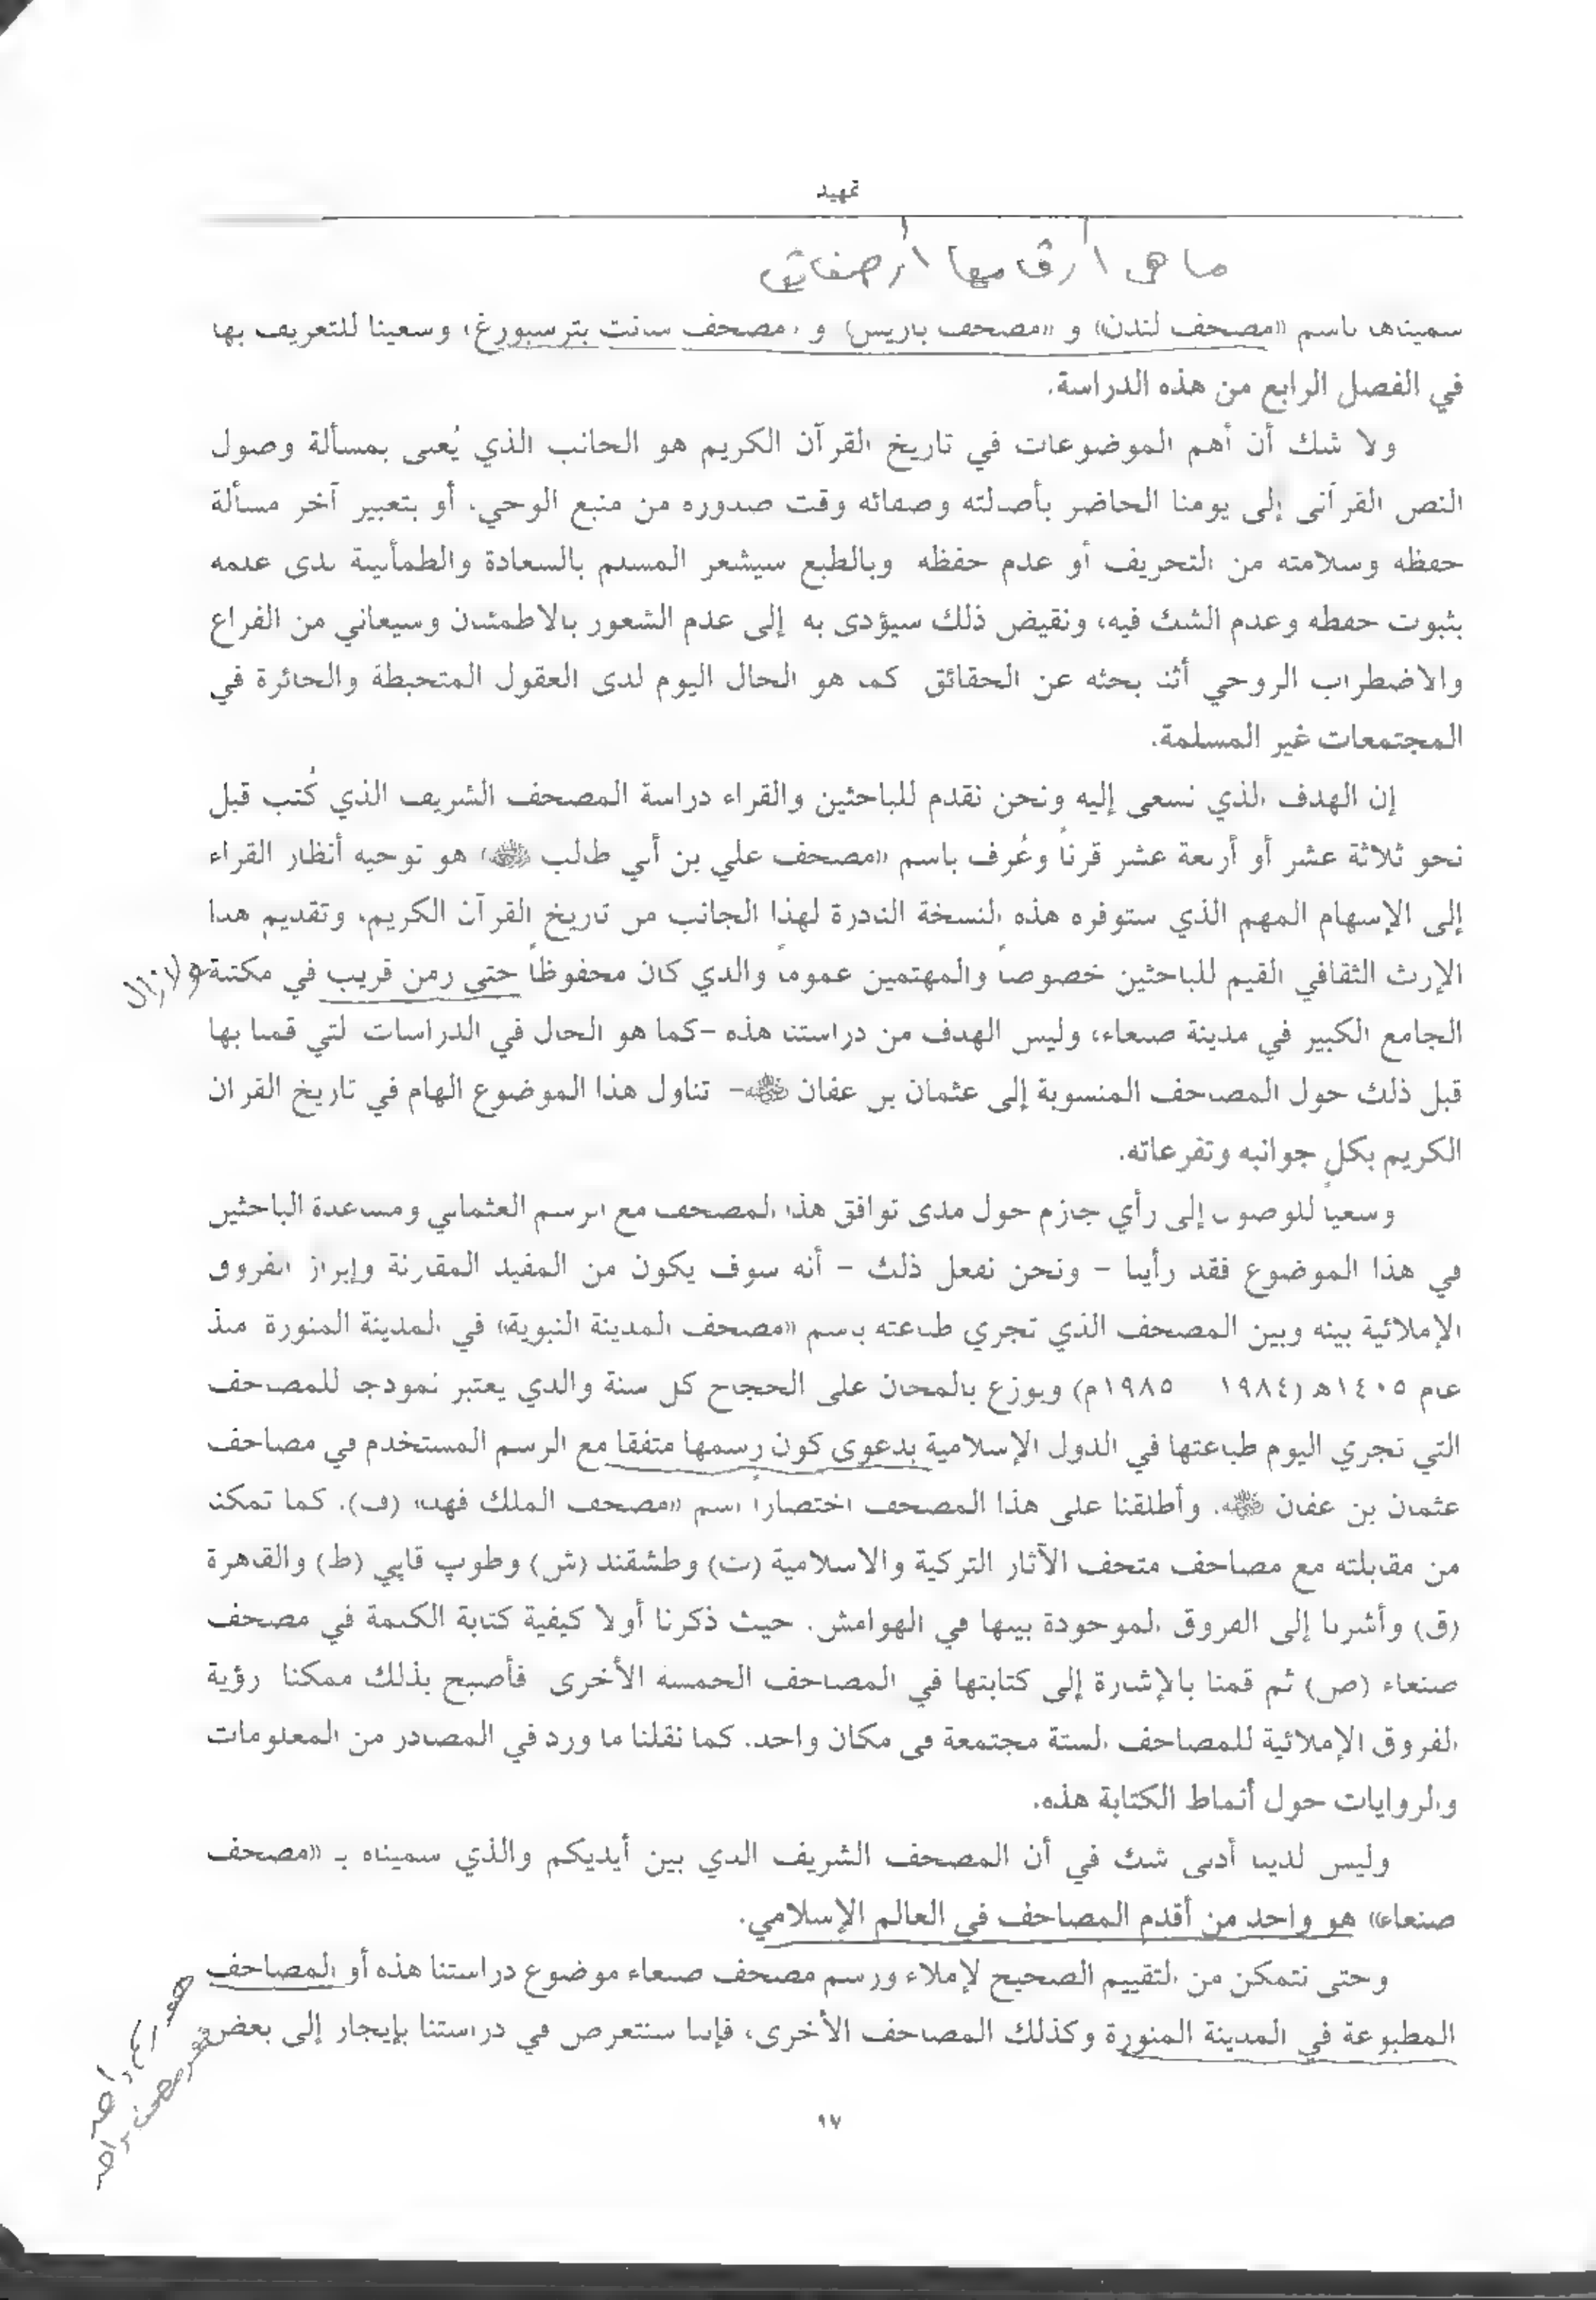 تمهيد
ما هى أرقامها أو صفاتها
سميناها باسم «مصحف لندن» و «مصحف باريس» و «مصحف سانت بترسبورغ» وسعينا للتعريف بها
في الفصل الرابع من هذه الدراسة.
ولا شك أن أهم الموضوعات في تاريخ القرآن الكريم هو الجانب الذي يُعنى بمسألة وصول
النص القرآني إلى يومنا الحاضر بأصالته وصفائه وقت صدوره من منبع الوحي، أو بتعبير آخر مسألة
حفظه وسلامته من التحريف أو عدم حفظه وبالطبع سيشعر المسلم بالسعادة والطمأنينة لدى علمه
بثبوت حفظه وعدم الشك فيه، ونقيض ذلك سيؤدى به إلى عدم الشعور بالاطمئنان وسيعاني من الفراغ
والاضطراب الروحي أثناء بحثه عن الحقائق كما هو الحال اليوم لدى العقول المتخبطة والحائرة في
المجتمعات غير المسلمة.
إن الهدف الذي نسعى إليه ونحن نقدم للباحثين والقراء دراسة المصحف الشريف الذي كُتب قبل
نحو ثلاثة عشر أو أربعة عشر قرناً وعُرف باسم «مصحف علي بن أبي طالب ﷺ» هو توجيه أنظار القراء
إلى الإسهام المهم الذي ستوفره هذه النسخة النادرة لهذا الجانب من تاريخ القرآن الكريم، وتقديم هذا
الإرث الثقافي القيم للباحثين خصوصاً والمهتمين عموماً والذي كان محفوظاً حتى زمن قريب في مكتبة
ولا زال
الجامع الكبير في مدينة صنعاء، وليس الهدف من دراستنا هذه -كما هو الحال في الدراسات التي قمنا بها
قبل ذلك حول المصاحف المنسوبة إلى عثمان بن عفان ﷺ- تناول هذا الموضوع الهام في تاريخ القرآن
الكريم بكل جوانبه وتفرعاته.
وسعياً للوصول إلى رأي جازم حول مدى توافق هذا المصحف مع الرسم العثماني ومساعدة الباحثين
في هذا الموضوع فقد رأينا - ونحن نفعل ذلك - أنه سوف يكون من المفيد المقارنة وإبراز الفروق
الإملائية بينه وبين المصحف الذي تجري طباعته باسم «مصحف المدينة النبوية» في المدينة المنورة منذ
عام ١٤٠٥هـ (١٩٨٤ ١٩٨٥م) ويوزع بالمجان على الحجاج كل سنة والذي يعتبر نموذجا للمصاحف
التي تجري اليوم طباعتها في الدول الإسلامية بدعوى كون رسمها متفقا مع الرسم المستخدم في مصاحف
عثمان بن عفان ﷺ. وأطلقنا على هذا المصحف اختصاراً اسم «مصحف الملك فهد» (ف). كما تمكنا
من مقابلته مع مصاحف متحف الآثار التركية والاسلامية (ت) وطشقند (ش) وطوپ قاپي (ط) والقاهرة
(ق) وأشرنا إلى الفروق الموجودة بينها في الهوامش. حيث ذكرنا أولا كيفية كتابة الكلمة في مصحف
صنعاء (ص) ثم قمنا بالإشارة إلى كتابتها في المصاحف الخمسة الأخرى فأصبح بذلك ممكنا رؤية
الفروق الإملائية للمصاحف الستة مجتمعة في مكان واحد. كما نقلنا ما ورد في المصادر من المعلومات
والروايات حول أنماط الكتابة هذه.
وليس لدينا أدنى شك في أن المصحف الشريف الذي بين أيديكم والذي سميناه بـ «مصحف
صنعاء» هو واحد من أقدم المصاحف في العالم الإسلامي.
وحتى نتمكن من التقييم الصحيح لإملاء ورسم مصحف صنعاء موضوع دراستنا هذه أو المصاحف
المطبوعة في المدينة المنورة وكذلك المصاحف الأخرى، فإننا سنتعرض في دراستنا بإيجاز إلى بعض
مصحف واحد
٩٧